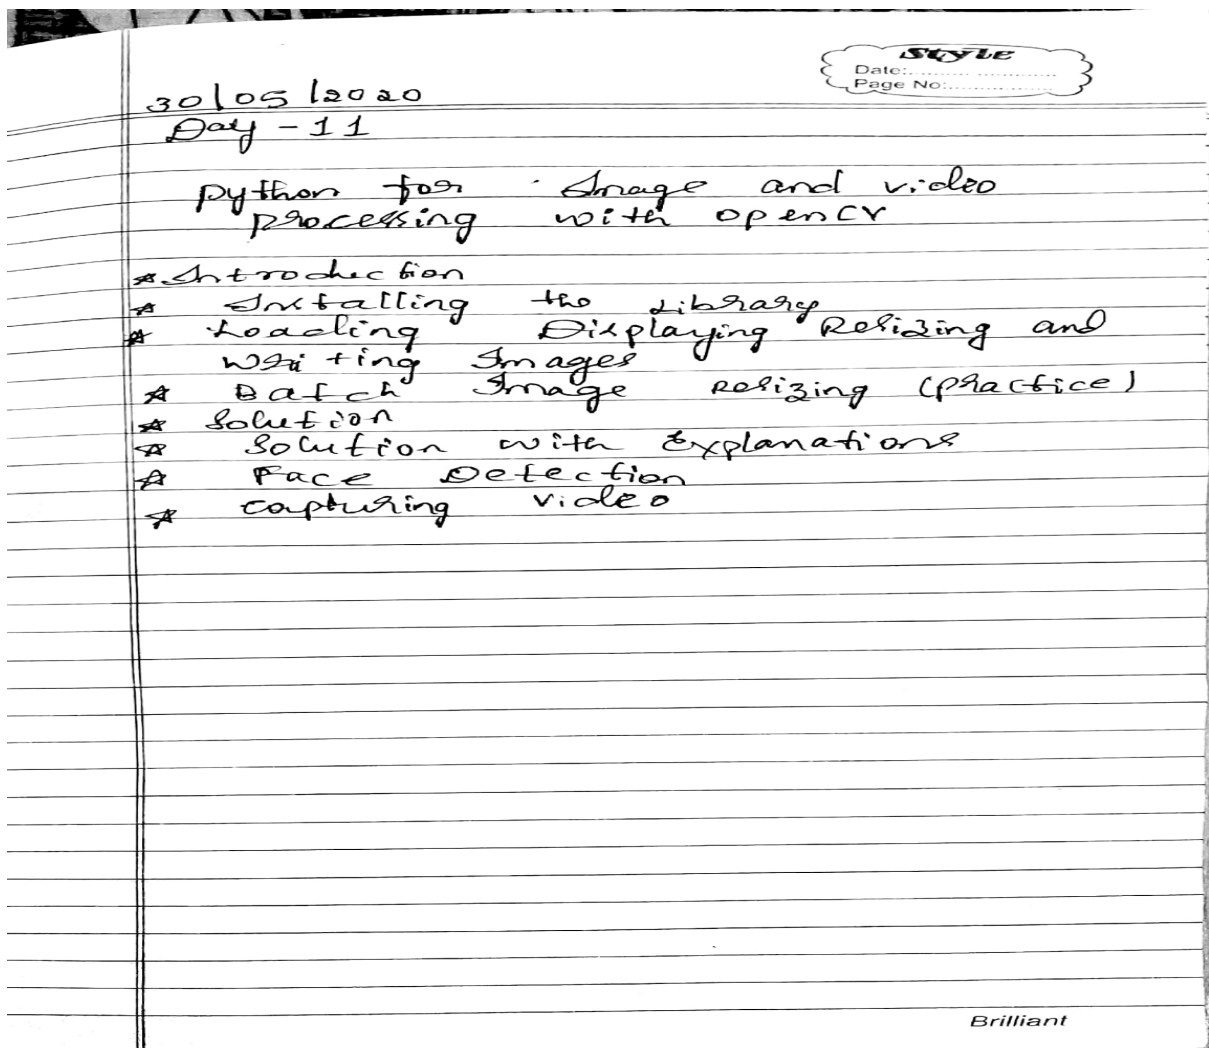 Style
Date:..................
Page No:..................
30/05/2020
Day - 11
python for Image and video
processing with opencv
* Introduction
* Installing the Library
* Loading Displaying Resizing and
Writing Images
* Batch Image Resizing (practice)
* Solution
* Solution with Explanations
* Face Detection
* capturing video
Brilliant